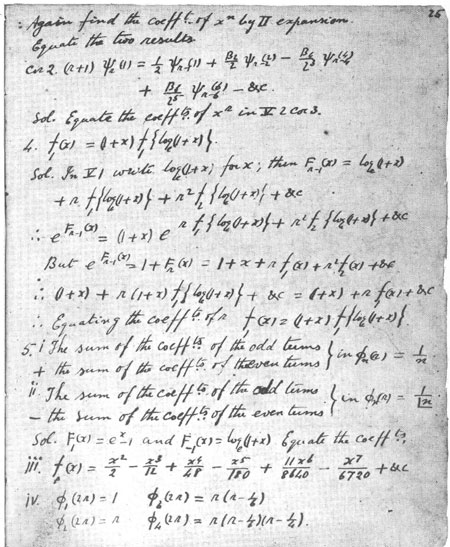 26
∴ Again find the coefft. of xⁿ by II expansion.
Equate the two results
cor 2. (r+1) ψ₂(1) = ½ ψ (1) + B₂/2 ψ (2) − B₄/2³ ψ (4)
+ B₆/2⁵ ψ (6) − &c.
Sol. Equate the coeffts. of xⁿ in IV 2 cor 3.
4. f₁(x) = (1+x) f₁{logₑ(1+x)}.
Sol. In IV 1 write logₑ(1+x) for x; then Fᵣ₋₁(x) = logₑ(1+x)
+ r f₁{logₑ(1+x)} + r² f₂{logₑ(1+x)} + &c
∴ e^{Fᵣ₋₁(x)} = (1+x) e^{r f₁{logₑ(1+x)} + r² f₂{logₑ(1+x)} + &c}
But e^{Fᵣ₋₁(x)} = 1 + Fᵣ(x) = 1 + x + r f₁(x) + r² f₂(x) + &c
∴ (1+x) + r (1+x) f₁{logₑ(1+x)} + &c = (1+x) + r f₁(x) + &c
∴ Equating the coefft. of r f₁(x) = (1+x) f₁{logₑ(1+x)}
5. i The sum of the coeffts. of the odd terms
+ the sum of the coeffts. of the even terms } in φₙ(r) = 1/n
ii The sum of the coeffts. of the odd terms
− the sum of the coeffts. of the even terms } in φₙ(r) = 1/|n
Sol. F₁(x) = eˣ − 1 and F₋₁(x) = logₑ(1+x) Equate the coeffts.
iii. f₁(x) = x²/2 − x³/12 + x⁴/48 − x⁵/180 + 11x⁶/8640 − x⁷/6720 + &c
iv. φ₁(2r) = 1 φ₃(2r) = r(r − ¼)
φ₂(2r) = r φ₄(2r) = r(r − ¼)(r − ⅙).